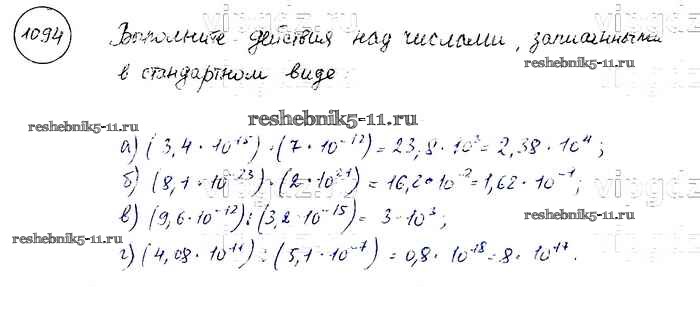 1094
Выполните действия над числами, записанными
в стандартном виде:
reshebnik5-11.ru
reshebnik5-11.ru
а) (3,4 · 10¹⁵) · (7 · 10⁻¹²) = 23,8 · 10³ = 2,38 · 10⁴ ;
б) (8,1 · 10⁻²³) · (2 · 10²¹) = 16,2 · 10⁻² = 1,62 · 10⁻¹ ;
в) (9,6 · 10⁻¹²) : (3,2 · 10⁻¹⁵) = 3 · 10³ ;
reshebnik5-11.ru
reshebnik5-11.ru
г) (4,08 · 10¹¹) : (5,1 · 10⁻⁷) = 0,8 · 10¹⁸ = 8 · 10¹⁷.